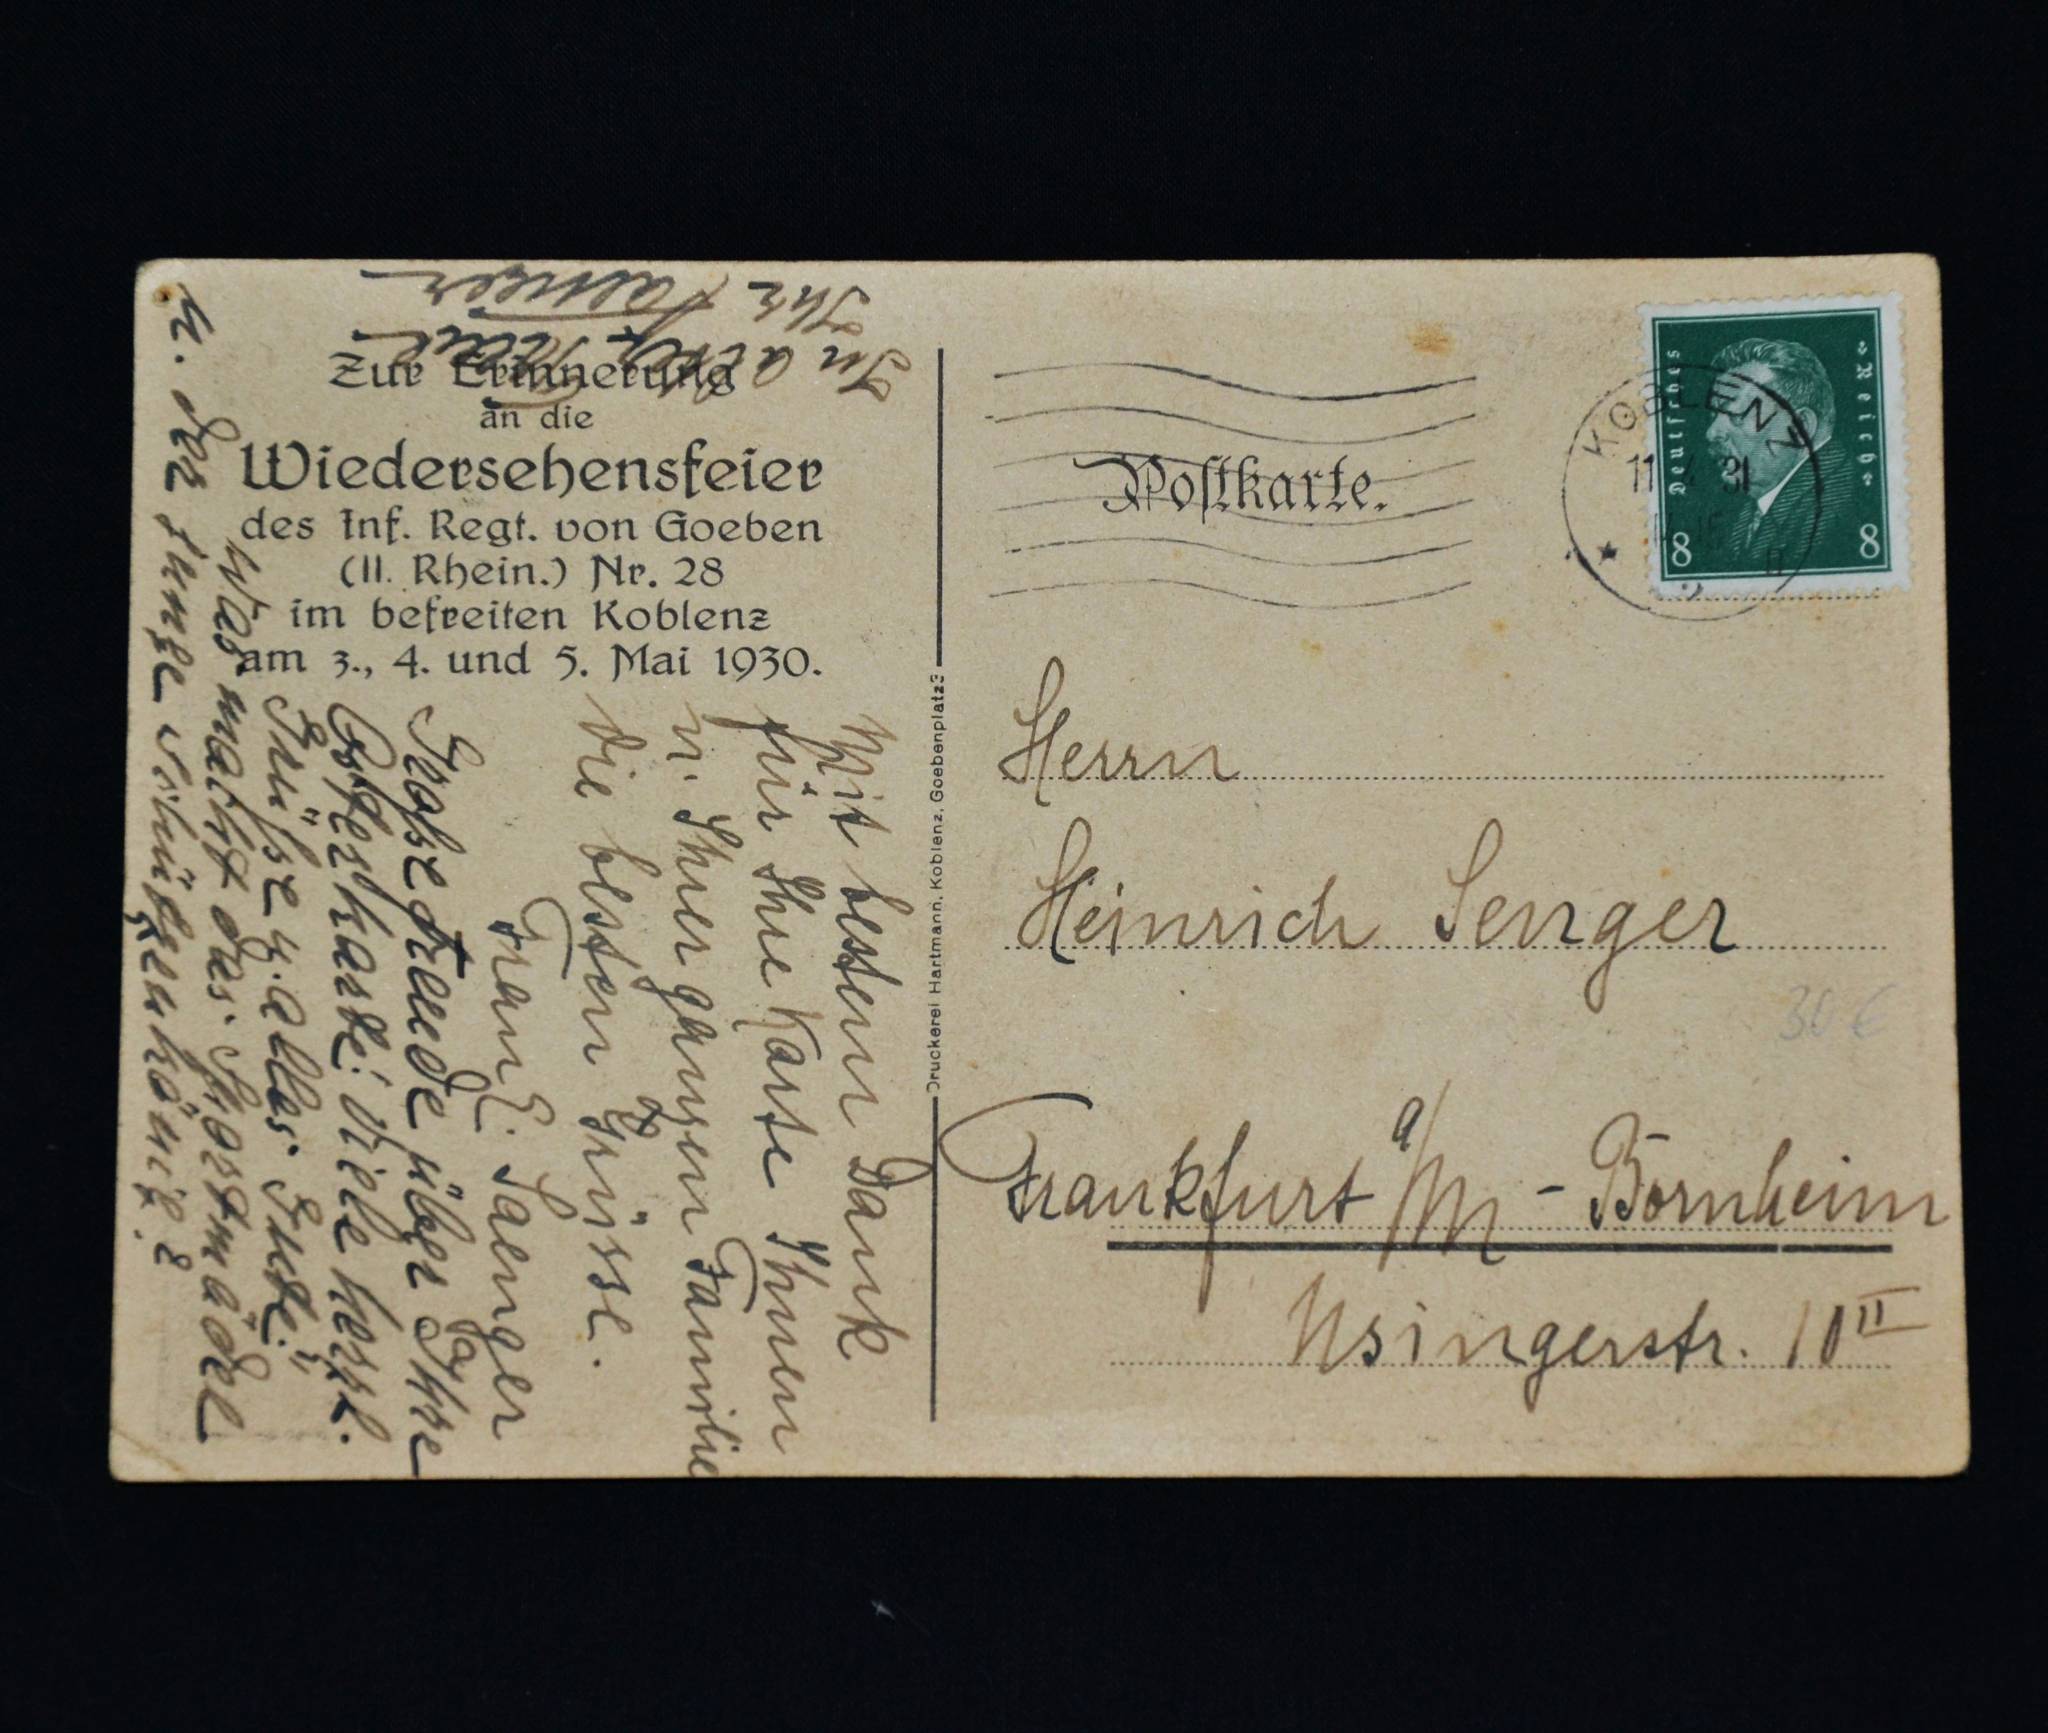 Zur Erinnerung
an die
Wiedersehensfeier
des Inf. Regt. von Goeben
(II. Rhein.) Nr. 28
im befreiten Koblenz
am 3., 4. und 5. Mai 1930.
Mit bestem Dank
für Ihre Karte Ihnen
u. Ihrer ganzen Familie
die besten Grüsse.
Franz Saenger
Grosse Freude über Ihre
Osterkarte! Viele herzl.
Grüsse u. alles Gute!
Was macht das Mädel
u. der junge Schützenkönig?
In alter
Ihr
Druckerei Hartmann, Koblenz, Goebenplatz 3
Postkarte.
Deutsches Reich
8 8
KOBLENZ
11 31
Herrn
Heinrich Senger
30 €
Frankfurt a/M - Bornheim
Usingerstr. 10 II